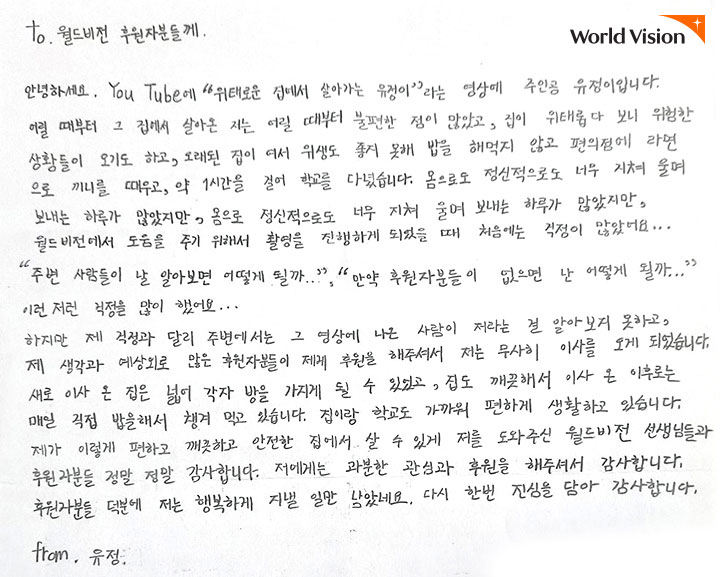 to. 월드비전 후원자분들께.
World Vision
안녕하세요. You Tube에 "위태로운 집에서 살아가는 유정이"라는 영상에 주인공 유정이입니다.
어릴 때부터 그 집에서 살아온 저는 어릴 때부터 불편한 점이 많았고, 집이 위태롭다 보니 위험한
상황들이 오기도 하고, 오래된 집이 여서 위생도 좋지 못해 밥을 해먹지 않고 편의점에 라면
으로 끼니를 때우고, 약 1시간을 걸어 학교를 다녔습니다. 몸으로도 정신적으로도 너무 지쳐 울며
보내는 하루가 많았지만, 몸으로 정신적으로도 너무 지쳐 울며 보내는 하루가 많았지만,
월드비전에서 도움을 주기 위해서 촬영을 진행하게 되었을 때 처음에는 걱정이 많았어요...
"주변 사람들이 날 알아보면 어떻게 될까...", "만약 후원자분들이 없으면 난 어떻게 될까..."
이런 저런 걱정을 많이 했어요...
하지만 제 걱정과 달리 주변에서는 그 영상에 나온 사람이 저라는 걸 알아보지 못하고,
제 생각과 예상외로 많은 후원자분들이 제게 후원을 해주셔서 저는 무사히 이사를 오게 되었습니다.
새로 이사 온 집은 넓어 각자 방을 가지게 될 수 있었고, 집도 깨끗해서 이사 온 이후로는
매일 직접 밥을해서 챙겨 먹고 있습니다. 집이랑 학교도 가까워 편하게 생활하고 있습니다.
제가 이렇게 편하고 깨끗하고 안전한 집에서 살 수 있게 저를 도와주신 월드비전 선생님들과
후원자분들 정말 정말 감사합니다. 저에게는 과분한 관심과 후원을 해주셔서 감사합니다.
후원자분들 덕분에 저는 행복하게 지낼 일만 남았네요. 다시 한번 진심을 담아 감사합니다.
from. 유정.